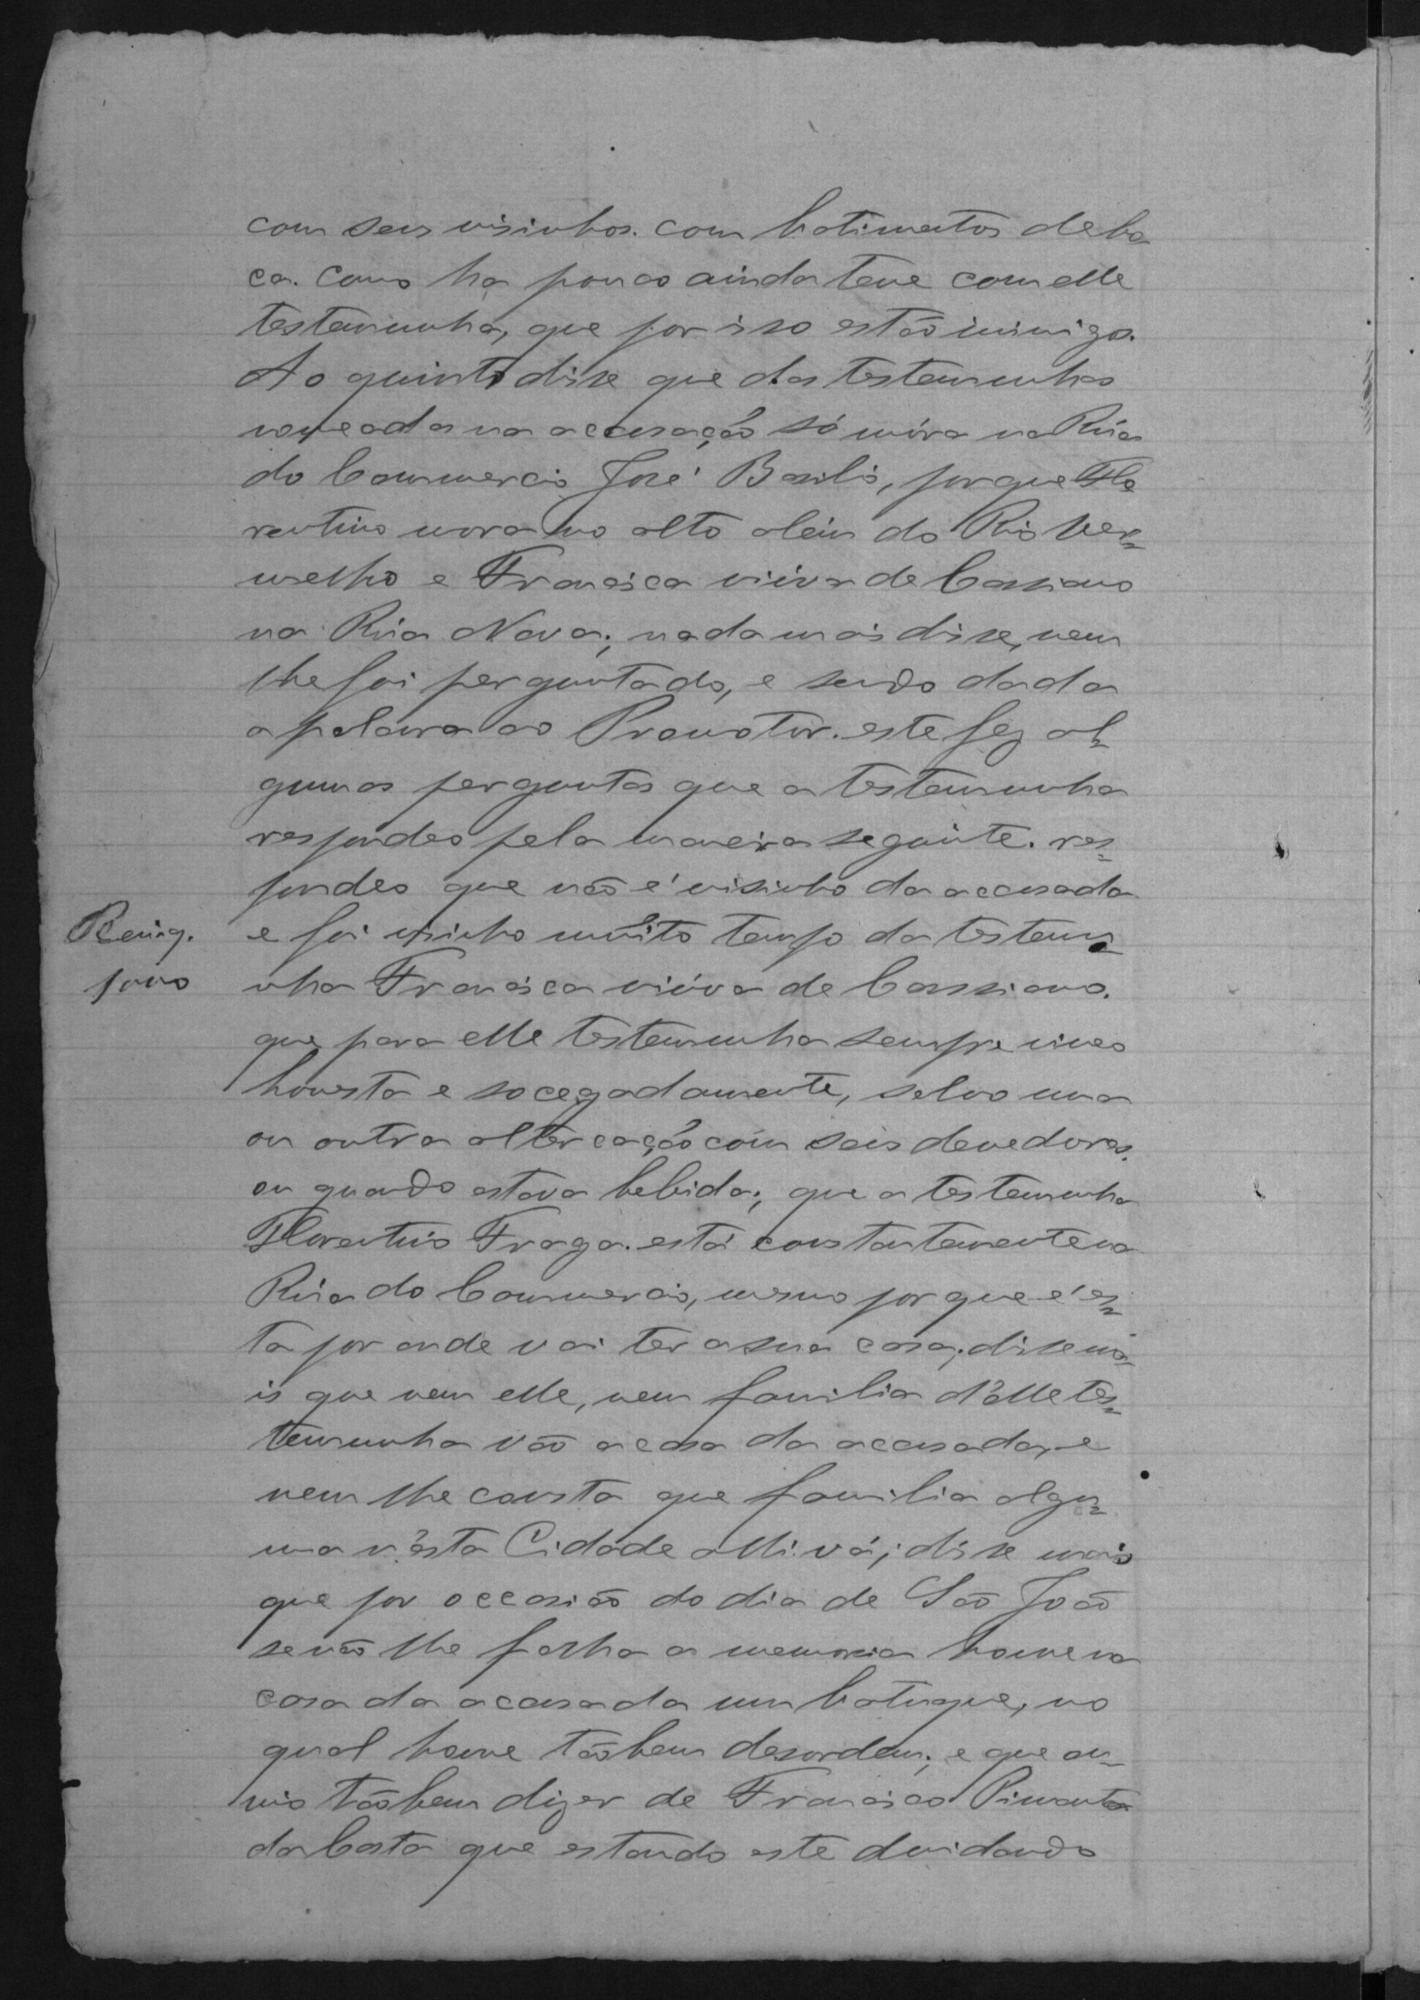 com seus visinhos. com batimentos de bo
ca. como ha pouco ainda teve com elle
testemunha, que por isso estão inimigos.
Ao quinto disse que das testemunhas
nomeadas na accusação só móra na Rúa
do Commercio José Basilio, porque Flo
rentino mora no alto além do Rio Ver-
melho e Francisca viúva de Cassiano
na Rúa Nova; nada mais disse, nem
lhe foi perguntado, e sendo dada
a palavra ao Promotor. este fez al-
gumas perguntas que a testemunha
respondeo pela maneira seguinte. res-
pondeo que não é visinho da accusada
e foi visinho muito tempo da testemu-
nha Francisca viúva de Cassiano.
que para elle testemunha sempre viveo
honesta e socegadamente, salvo uma
ou outra altercação com seus devedores.
ou quando estava bebida; que a testemunha
Florentino Fraga. está constantemente na
Rúa do Commercio, mesmo porque é es-
ta por onde vai ter a sua casa; disse ma-
is que nem elle, nem familia d'elle tes-
temunha vão a casa da accusada, e
nem lhe consta que familia algu-
ma n'esta Cidade alli vá; disse mais
que por occasião do dia de São João
se não lhe falha a memoria houve na
casa da accusada um batuque, no
qual houve tãobem desordem; e que ou-
vio tãobem dizer de Francisco Pimenta
da Costa que estando este duvidando